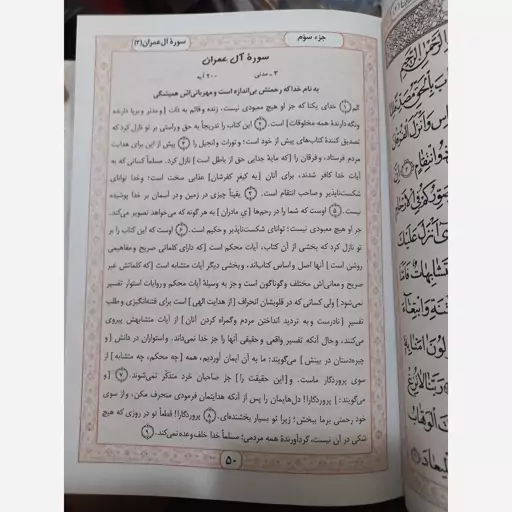 جزء سوّم
سورهٔ آل عمران (۳)
سورهٔ آل عمران
۳ ـ مدنی ۲۰۰ آیه
به نام خدا که رحمتش بی‌اندازه است و مهربانی‌اش همیشگی
الم ﴿۱﴾ خدای یکتا که جز او هیچ معبودی نیست، زنده و قائم به ذات [و مدبّر و برپا دارنده
و نگه‌دارندهٔ همه مخلوقات] است. ﴿۲﴾ این کتاب را تدریجاً به حق و راستی بر تو نازل کرد که
تصدیق کنندهٔ کتاب‌های پیش از خود است؛ و تورات و انجیل را ﴿۳﴾ پیش از این برای هدایت
مردم فرستاد، و فرقان را [که مایهٔ جدایی حق از باطل است] نازل کرد. مسلماً کسانی که به
آیات خدا کافر شدند، برای آنان [به کیفر کفرشان] عذابی سخت است؛ و خدا توانای
شکست‌ناپذیر و صاحب انتقام است. ﴿۴﴾ یقیناً چیزی در زمین و در آسمان بر خدا پوشیده
نیست. ﴿۵﴾ اوست که شما را در رحم‌ها [ی مادران] به هر گونه که می‌خواهد تصویر می‌کند.
جز او هیچ معبودی نیست؛ توانای شکست‌ناپذیر و حکیم است. ﴿۶﴾ اوست که این کتاب را بر
تو نازل کرد که بخشی از آن کتاب، آیات محکم است [که دارای کلماتی صریح و مفاهیمی
روشن است] آنها اصل و اساس کتاب‌اند، و بخشی دیگر آیات متشابه است [که کلماتش غیر
صریح و معانی‌اش مختلف و گوناگون است و جز به وسیلهٔ آیات محکم و روایات استوار تفسیر
نمی‌شود] ولی کسانی که در قلوبشان انحراف [از هدایت الهی] است برای فتنه‌انگیزی و طلب
تفسیرِ [نادرست و به تردید انداختن مردم و گمراه کردن آنان] از آیات متشابهش پیروی
می‌کنند، و حال آنکه تفسیر واقعی و حقیقی آنها را جز خدا نمی‌داند. و استواران در دانش [و
چیره‌دستان در بینش] می‌گویند: ما به آن ایمان آوردیم، همه [چه محکم، چه متشابه] از
سوی پروردگار ماست. و [این حقیقت را] جز صاحبان خرد متذکّر نمی‌شوند. ﴿۷﴾ [
می‌گویند:] پروردگارا! دل‌هایمان را پس از آنکه هدایتمان فرمودی منحرف مکن، و از سوی
خود رحمتی برما ببخش؛ زیرا تو بسیار بخشنده‌ای. ﴿۸﴾ پروردگارا! قطعاً تو در روزی که هیچ
شکی در آن نیست، گردآورندهٔ همه مردمی؛ مسلماً خدا خلف وعده نمی‌کند. ﴿۹﴾
۵۰